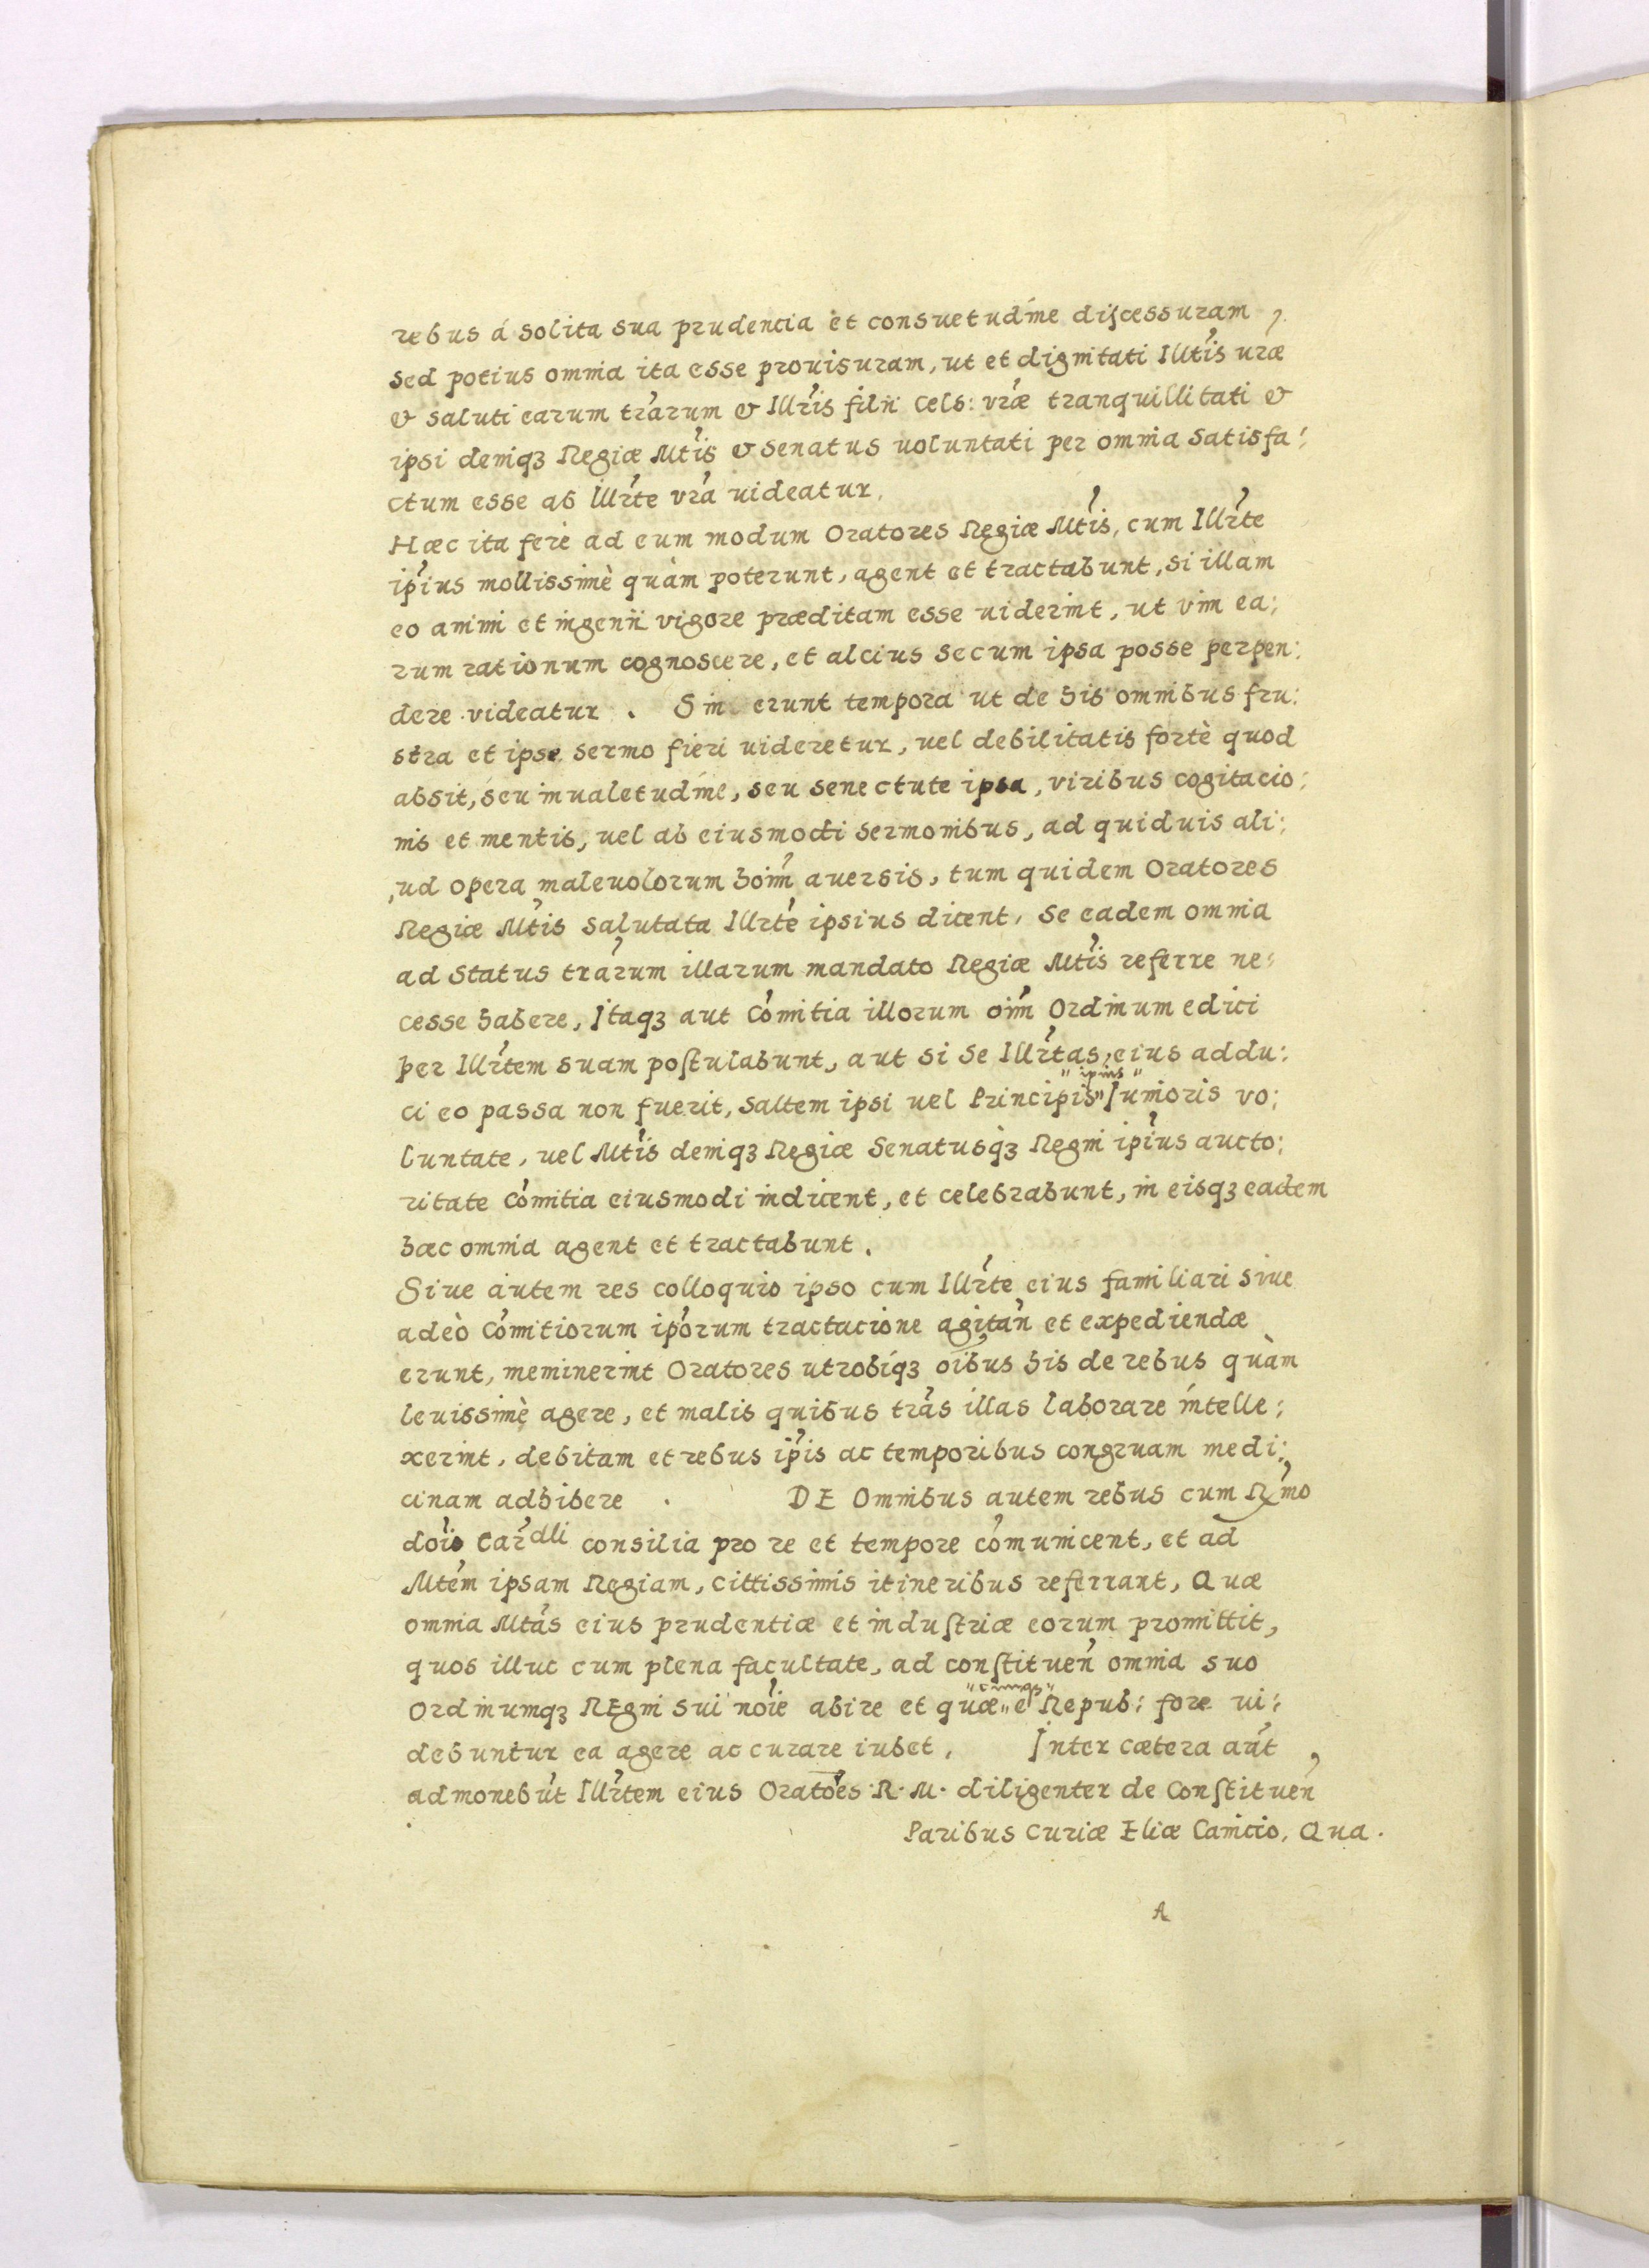 rebus á solita sua prudentia et consuetudine discessuram,
sed potius omnia ita esse prouisuram, ut et dignitati Illtis uræ
& saluti earum trarum & Illris filii Cels: vræ tranquillitati &
ipsi deniqꝫ Regiæ Mtis & senatus uoluntati per omnia satisfa:
ctum esse ab Illrte vra uideatur.
Hæc ita ferè ad eum modum Oratores Regiæ Mtis, cum Illrte
ipius mollissimè quàm poterunt, agent et tractabunt, si illam
eo animi et ingenii vigore præditam esse uiderint, ut vim ea:
rum rationum cognoscere, et alcius secum ipsa posse perpen:
dere videatur. Sin erunt tempora ut de his omnibus fru:
stra et ipse sermo fieri uideretur, uel debilitatis fortè quod
absit, seu inualetudine, seu senectute ipsa, viribus cogitacio:
nis et mentis, uel ab eiusmodi sermonibus, ad quiduis ali:
ud opera maleuolorum hoim auersis, tum quidem Oratores
Regiæ Mtis salutata Illrte ipsius dicent, se eadem omnia
ad status trarum illarum mandato Regiæ Mtis referre ne:
cesse habere, Itaqꝫ aut Comitia illorum oim Ordinum edici
per Illrtem suam postulabunt, aut si se Illrtas eius addu:
ci eo passa non fuerit, saltem ipsi uel Principis "ipius" Iunioris vo:
luntate, uel Mtis deniqꝫ Regiæ Senatusqꝫ Regni ipius aucto:
ritate Comitia eiusmodi indicent, et celebrabunt, in eisqꝫ eadem
hæc omnia agent et tractabunt.
Siue autem res colloquio ipso cum Illrte eius familiari siue
adeò Comitiorum iporum tractacione agitan et expediendæ
erunt, meminerint Oratores utrobiqꝫ oibus his de rebus quàm
leuissimè agere, et malis quibus tras illas laborare intelle:
xerint, debitam et rebus ipis ac temporibus congruam medi:
cinam adhibere. DE Omnibus autem rebus cum Rmo
doio Cardli consilia pro re et tempore comunicent, et ad
Mtem ipsam Regiam, cittissimis itineribus referrant, Quæ
omnia Mtas eius prudentiæ et industriæ eorum promittit,
quos illuc cum plena facultate, ad constituen omnia suo
Ordinumqꝫ REgni sui noie abire et quæ e Repub: fore ui:
debuntur ea agere ac curare iubet. Inter cætera aut
admonebut Illrtem eius Oratoes R. M. diligenter de Constituen
Paribus Curiæ Eliæ Camicio, Qua.